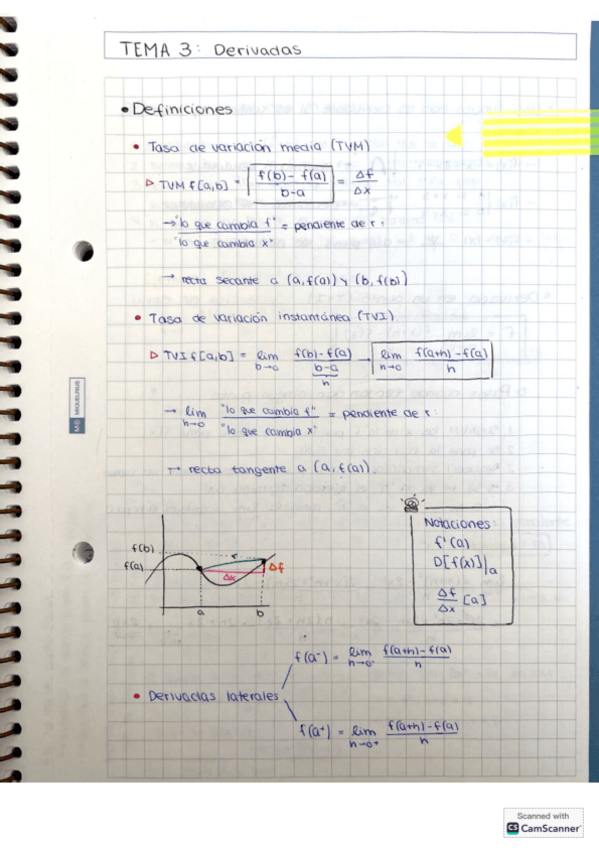 TEMA 3: Derivadas
• Definiciones
• Tasa de variación media (TVM)
▷ TVM f[a,b] = f(b) - f(a) / b-a = Δf / Δx
→ "lo que cambia f" / "lo que cambia x" = pendiente de r:
→ recta secante a (a, f(a)) y (b, f(b))
• Tasa de variación instantánea (TVI)
▷ TVI f[a,b] = lim b→a f(b)-f(a) / b-a → lim h→0 f(a+h)-f(a) / h
h
→ lim h→0 "lo que cambia f" / "lo que cambia x" = pendiente de r:
→ recta tangente a (a, f(a))
f(b)
f(a)
r
Δx
Δf
a
b
Notaciones:
f'(a)
D[f(x)]|a
Δf / Δx [a]
• Derivadas laterales
f(a⁻) = lim h→0⁻ f(a+h)-f(a) / h
f(a⁺) = lim h→0⁺ f(a+h)-f(a) / h
MIQUELRIUS
Scanned with
CS CamScanner